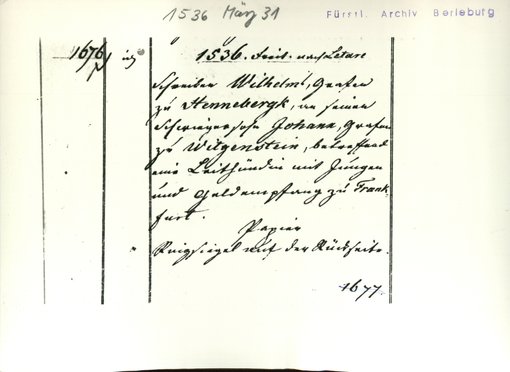 1536 März 31
Fürstl. Archiv Berleburg
1676
1536. Freit. nach Letare
Schreiben Wilhelms, Grafen
zu Hennebergk, an seinen
Schwiegersohn Johann, Grafen
zu Witgenstein, betreffend
eine Leithündin mit Jungen
und Geldempfang zu Frank-
furt.
Papier
Ringsiegel auf der Rückseite.
1677.